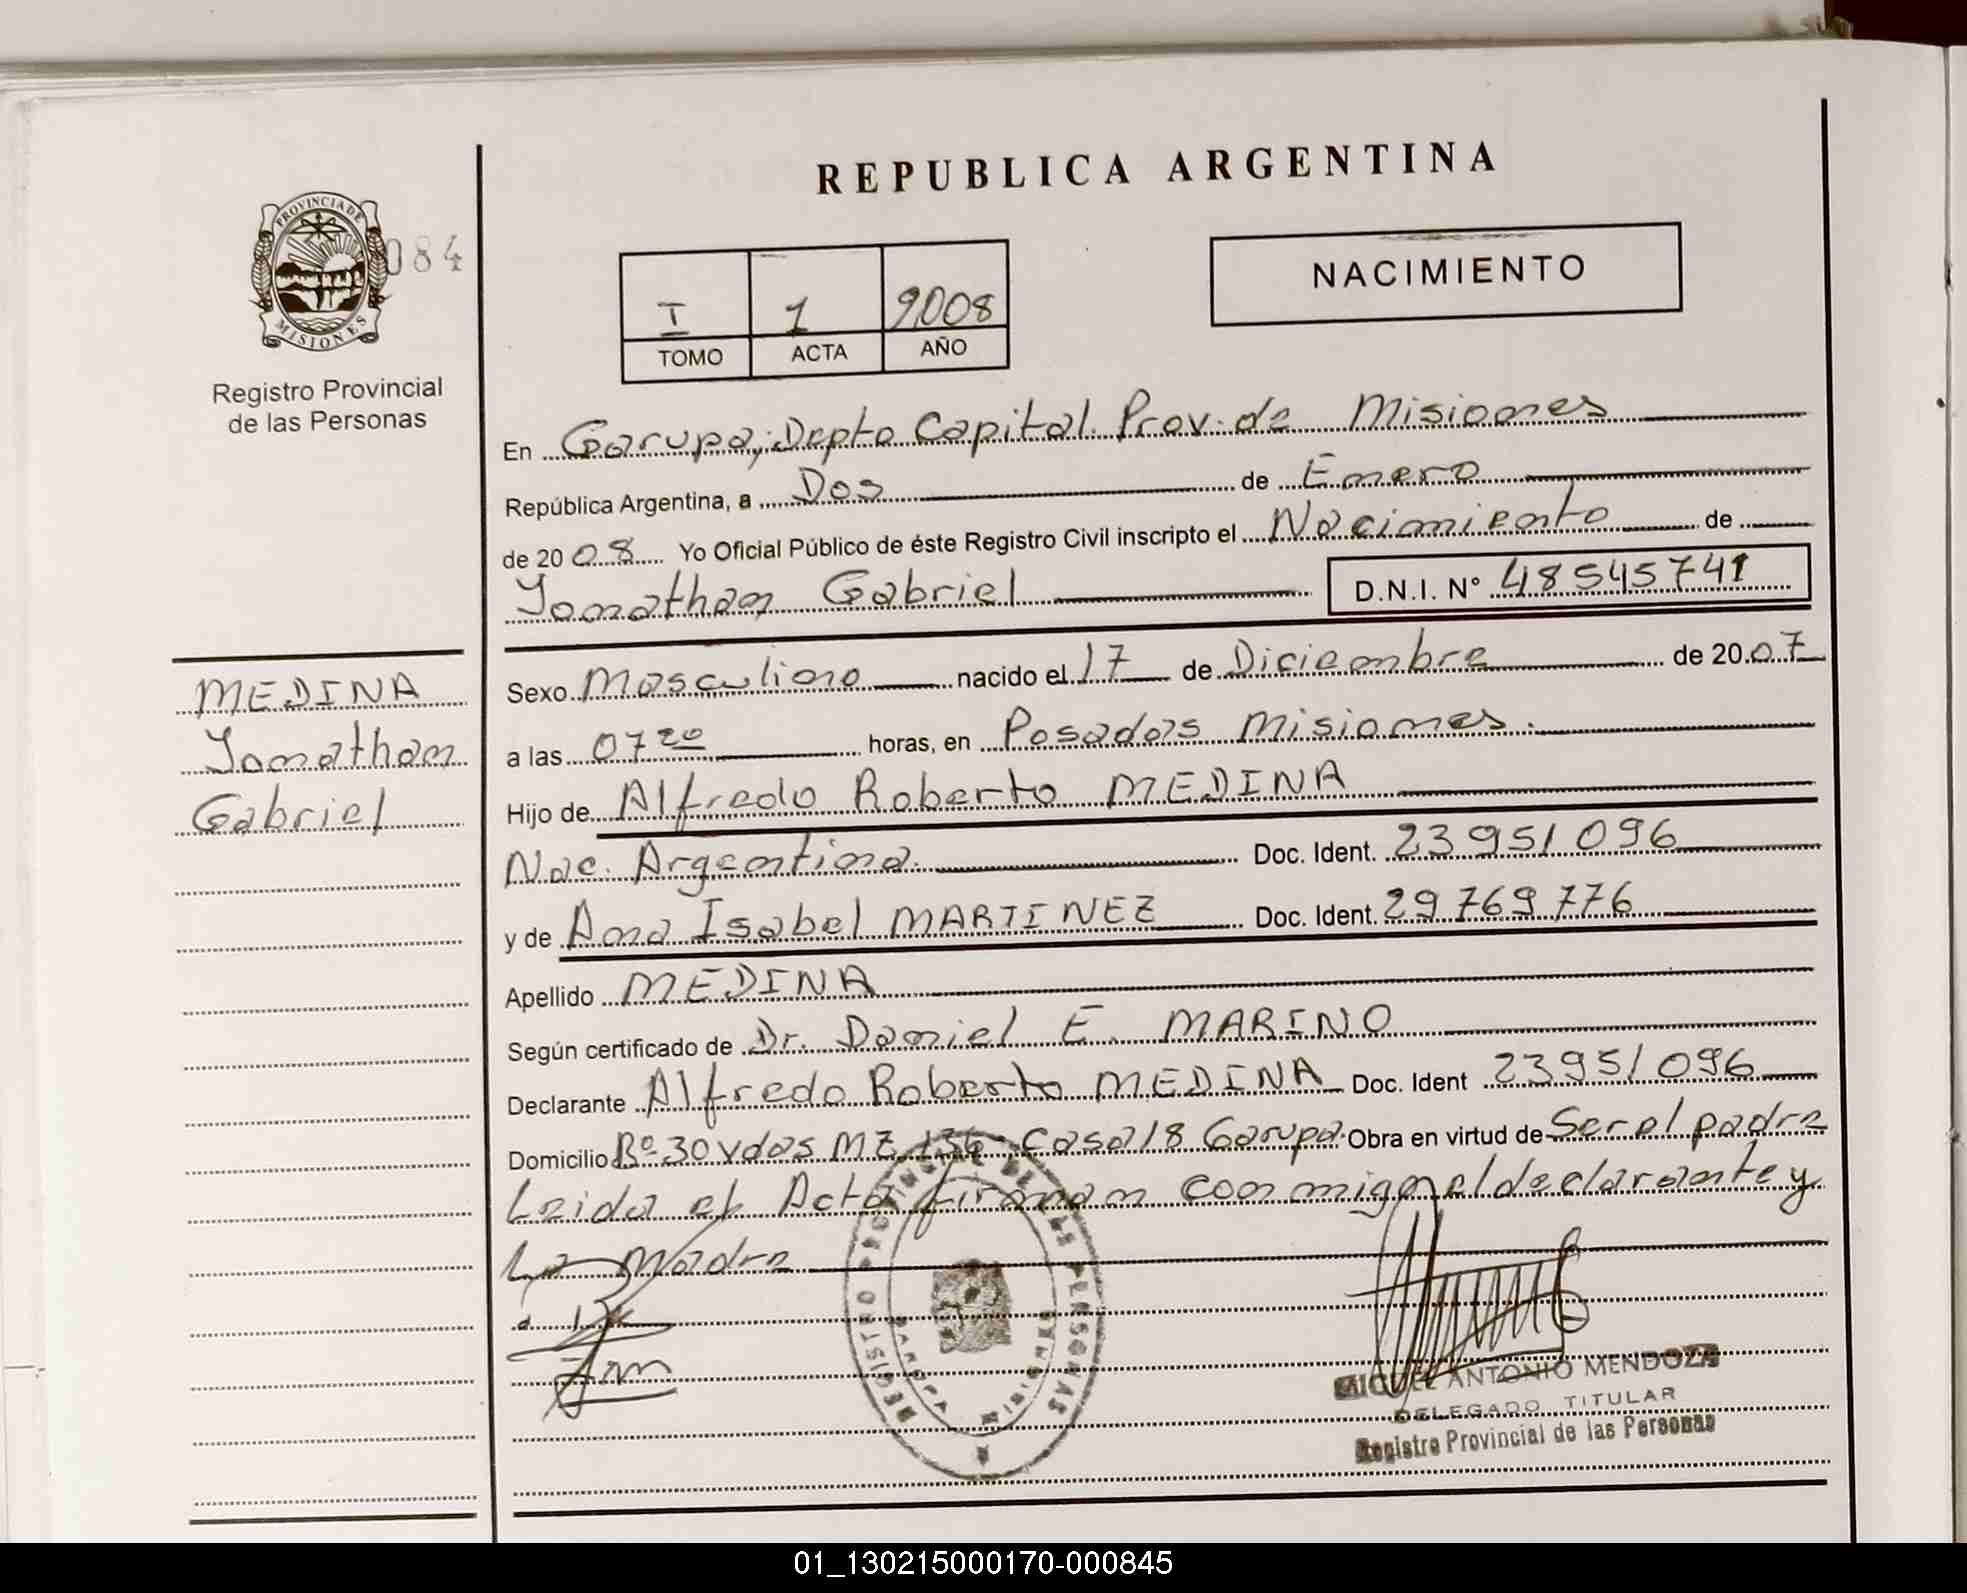 REPUBLICA ARGENTINA
PROVINCIA DE
MISIONES
084
Registro Provincial
de las Personas
I 1 2008
TOMO ACTA AÑO
NACIMIENTO
En Garupa, Depto Capital. Prov. de Misiones
República Argentina, a Dos de Enero
de 20 08 Yo Oficial Público de éste Registro Civil inscripto el Nacimiento de
Yonathan Gabriel D.N.I. Nº 48545741
MEDINA
Yonathan
Gabriel
Sexo Masculino nacido el 17 de Diciembre de 20 07
a las 07 20 horas, en Posadas Misiones.
Hijo de Alfredo Roberto MEDINA
Nac. Argentina. Doc. Ident. 23951096
y de Ana Isabel MARTINEZ Doc. Ident. 29769776
Apellido MEDINA
Según certificado de Dr. Daniel E. MARINO
Declarante Alfredo Roberto MEDINA Doc. Ident 23951096
Domicilio Bº 30 vdas MZ 136 Casa 18 Garupa. Obra en virtud de Ser el padre
Leida el Acta firman con migo el declarante y
La madre
REGISTRO PROVINCIAL DE LAS PERSONAS
GARUPA MISIONES
MIGUEL ANTONIO MENDOZA
DELEGADO TITULAR
Registro Provincial de las Personas
01_130215000170-000845